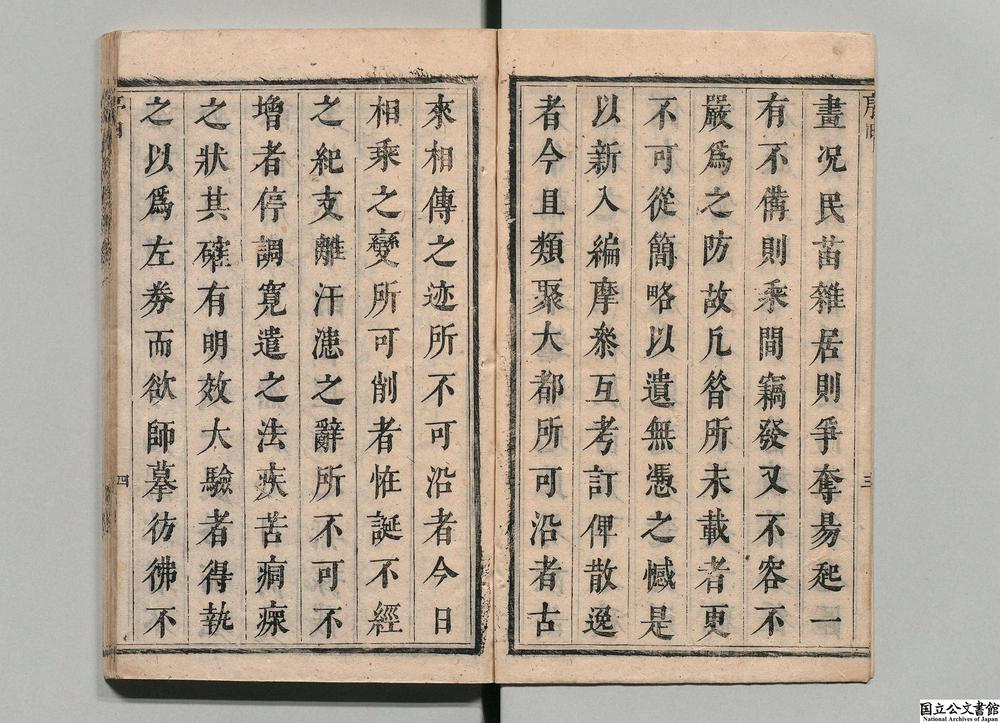 畫况民苗雜居則爭奪易起一
有不備則乘間竊發又不容不
嚴爲之防故凡昝所未載者更
不可從簡略以遺無憑之憾是
以新入編摩叅互考訂俾散逸
者今且類聚大都所可沿者古
三
來相傳之迹所不可沿者今日
相乘之變所可削者恠誕不經
之紀支離汗漶之辭所不可不
增者停調寬遣之法疾苦痌瘝
之狀其確有明效大驗者得執
之以爲左券而欲師摹彷彿不
四
国立公文書館
National Archives of Japan